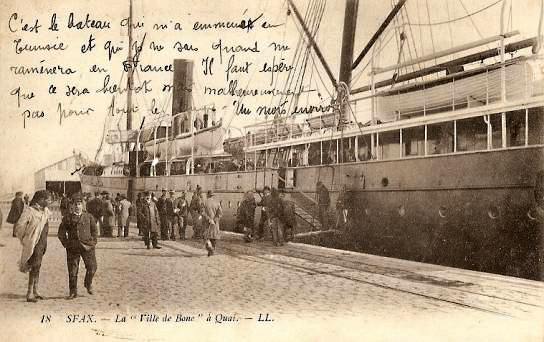 C'est le bateau qui m'a emmené en
Tunisie et qui je ne sais quand me
ramènera en France Il faut espérer
que ce sera bientôt mais malheureusement
pas pour tout le Un mois environ
18 SFAX. — La "Ville de Bone" à Quai. — LL.